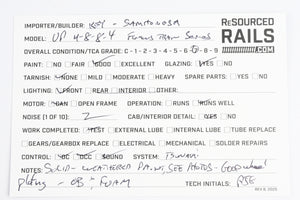 IMPORTER/BUILDER: KEY - SAMHONGSA
MODEL: UP 4-8-8-4
OVERALL CONDITION/TCA GRADE: C- 1 - 2 - 3 - 4 - 5 - 6 - 7 - 8 - 9
PAINT: NO FAIR GOOD EXCELLENT GLAZING: YES NO
TARNISH: NONE MILD MODERATE HEAVY SPARE PARTS: YES NO
LIGHTING: FRONT REAR INTERIOR OTHER:
MOTOR: CAN OPEN FRAME OPERATION: RUNS RUNS WELL
NOISE (1 OF 10): 2 CAB/INTERIOR DETAIL: YES NO
WORK COMPLETED: TEST EXTERNAL LUBE INTERNAL LUBE TUBE REPLACE
GEARS/GEARBOX REPLACE ELECTRICAL MECHANICAL SOLDER REPAIRS
CONTROL: DC DCC SOUND SYSTEM: TSUNAMI
NOTES: SOLID - WEATHERED PAINT, SEE PHOTOS - GOOD wheel
plating - OB; FOAM TECH INITIALS: RSE
RESOURCED
RAILS
.COM
REV 8, 2025